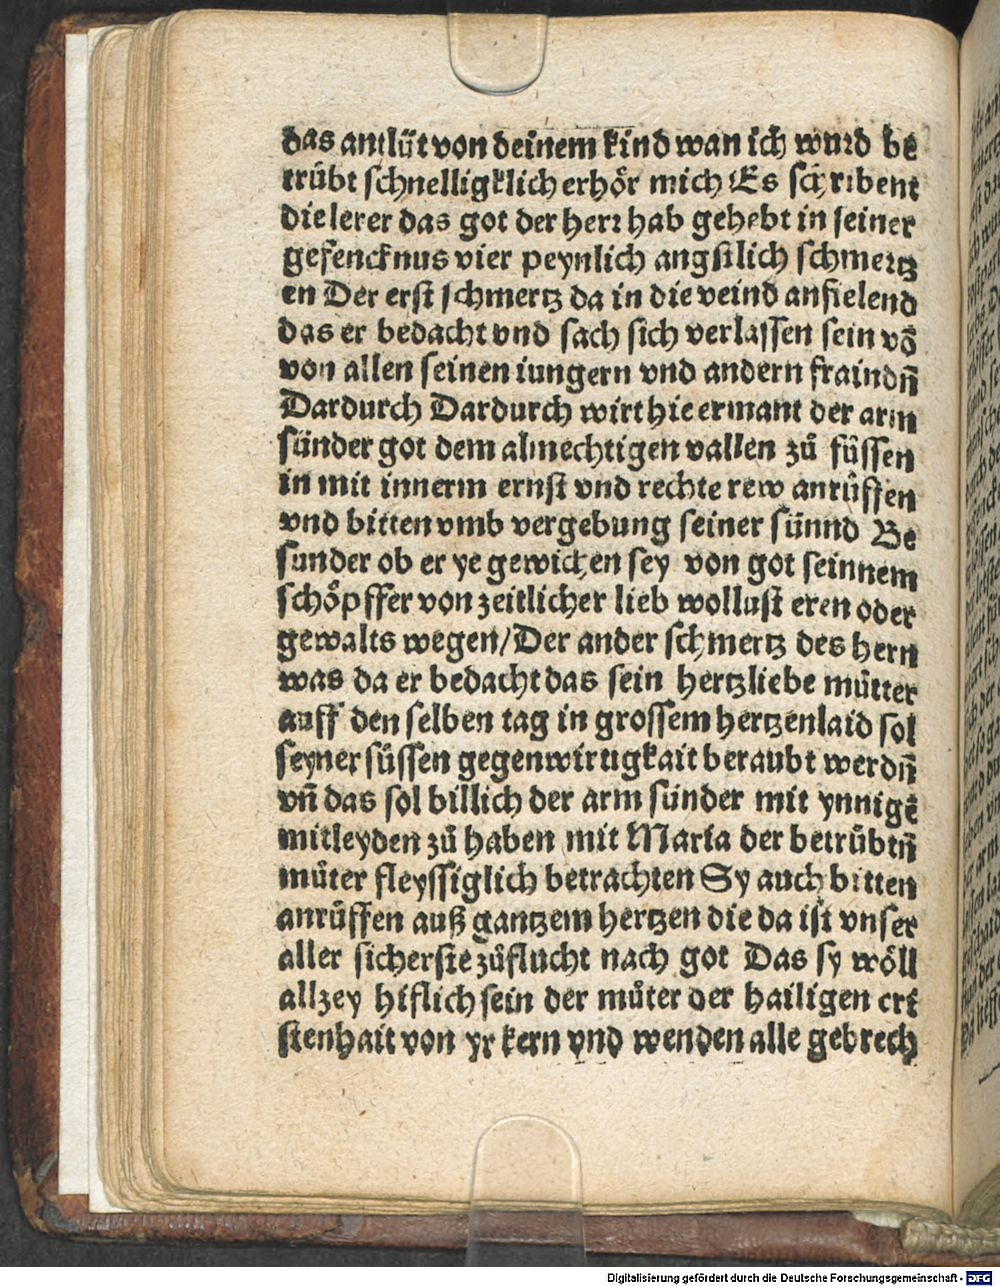 das antlüt von deinem kind wan ich wurd be
trübt schnelligklich erhör mich Es schribent
die lerer das got der herr hab gehebt in seiner
gefencknus vier peynlich angstlich schmertz
en Der erst schmertz da in die veind anfielend
das er bedacht vnd sach sich verlassen sein vō
von allen seinen iungern vnd andern fraindn̄
Dardurch Dardurch wirt hie ermant der arm
sünder got dem almechtigen vallen zů füssen
in mit innerm ernst vnd rechte rew anrůffen
vnd bitten vmb vergebung seiner sünnd Be
sunder ob er ye gewichen sey von got seinnem
schöpffer von zeitlicher lieb wollust eren oder
gewalts wegen/Der ander schmertz des hern
was da er bedacht das sein hertzliebe můtter
auff den selben tag in grossem hertzenlaid sol
seyner süssen gegenwirtigkait beraubt werdn̄
vn̄ das sol billich der arm sünder mit ynnigē
mitleyden zů haben mit Maria der betrübtn̄
můter fleyssiglich betrachten Sy auch bitten
anrůffen auß gantzem hertzen die da ist vnser
aller sicherste zůflucht nach got Das sy wöll
allzey hiflich sein der můter der hailigen cri
stenhait von yr kern vnd wenden alle gebrech
Digitalisierung gefördert durch die Deutsche Forschungsgemeinschaft - DFG